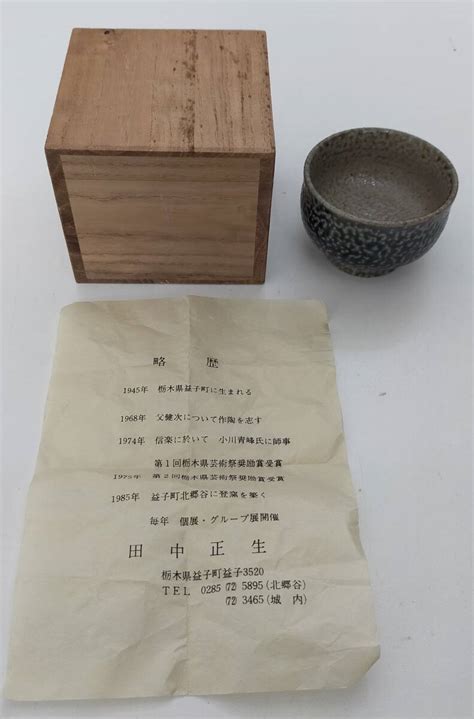 略歴
1945年 栃木県益子町に生まれる
1968年 父健次について作陶を志す
1974年 信楽に於いて 小川青峰氏に師事
第1回栃木県芸術祭奨励賞受賞
1975年 第2回栃木県芸術祭奨励賞受賞
1985年 益子町北郷谷に登窯を築く
毎年 個展・グループ展開催
田中正生
栃木県益子町益子3520
TEL 0285 (72) 5895(北郷谷)
(72) 3465(城内)